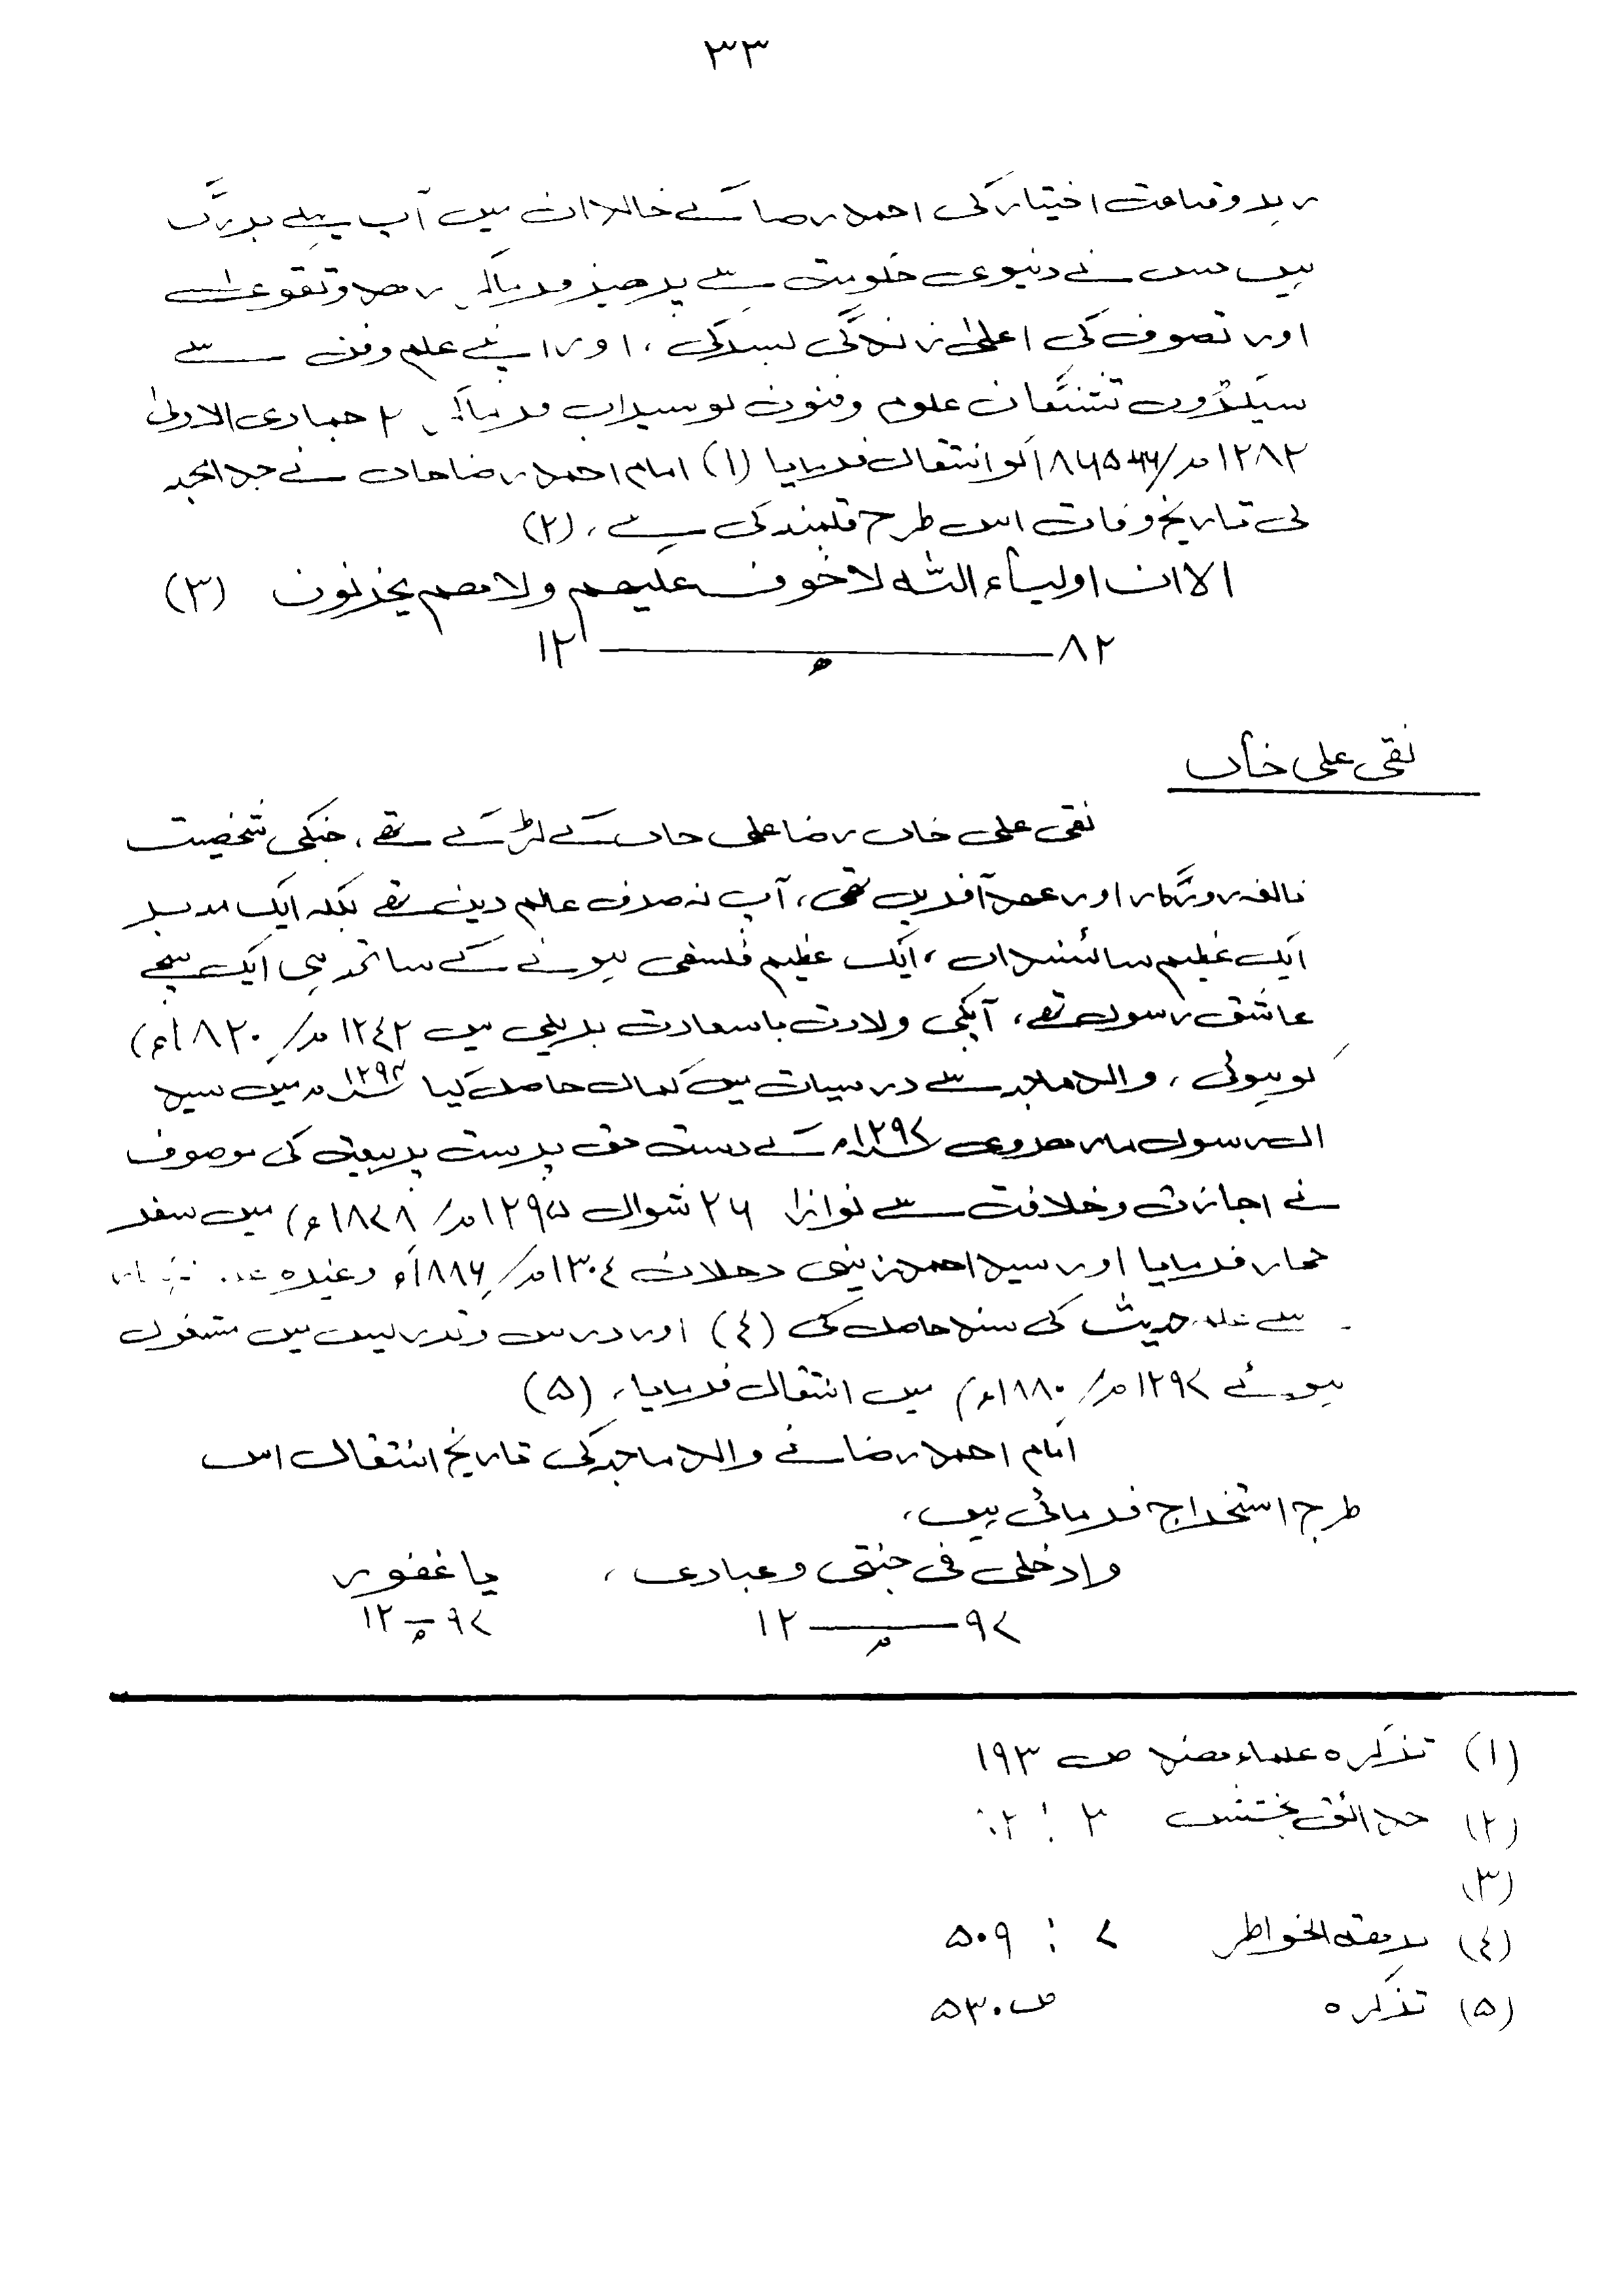 ٣٣
اختیار کی احمد رضا کے خاندان میں آپ پہلے بزرگ
ہیں جس نے دنیوی حکومت سے پرہیز فرمایا۔ زھد و تقوی
اور تصوف کی اعلیٰ زندگی بسر کی، اور اپنے علم و فن سے
سیکڑوں تشنگان علوم و فنون کو سیراب فرمایا۔ ٢ جمادی الاولیٰ
١٢٨٢ھ/١٨٦٥ کو انتقال فرمایا (١) امام احمد رضا خاں نے جد امجد
کی تاریخ وفات اس طرح قلمبند کی ہے، (٢)
الا ان اولیاء اللہ لا خوف علیھم ولا ھم یحزنون (٣)
١٢ ــــــھــــــ ٨٢
نقی علی خاں
نقی علی خاں رضا علی خاں کے لڑکے تھے، جنکی شخصیت
نابغہ روزگار اور عھد آفریں تھی، آپ نہ صرف عالم دین تھے بلکہ ایک مدبر
ایک عظیم سائنسداں، ایک عظیم فلسفی ہونے کے ساتھ ہی ایک سچے
عاشق رسول تھے، آپکی ولادت با سعادت بریلی میں ١٢٤٢ھ/١٨٢٠ء)
کو ہوئی، والد ماجد سے درسیات میں کمال حاصل کیا ١٢٩٣ھ میں سید
ال رسول مارھروی ١٢٩٧ھ کے دست حق پرست پر بیعت کی موصوف
نے اجازت و خلافت سے نوازا ٢٦ شوال ١٢٩٥ھ/١٨٧٨ء) میں سفر
حجاز فرمایا اور سید احمد زینی دحلان ١٣٠٤ھ/١٨٨٦ء وغیرہ
سے حدیث کی سند حاصل کی (٤) اور درس و تدریس میں مشغول
ہوئے ١٢٩٧ھ/١٨٨٠ء) میں انتقال فرمایا، (٥)
امام احمد رضا نے والد ماجد کی تاریخ انتقال اس
طرح استخراج فرمائی ہیں،
وادخلی فی جنتی وعبادی، یا غفور
١٢ ــھــ ٩٧ ١٢ ــھــ ٩٧
(١) تذکرہ علماء ھند ص ١٩٣
(٢) حدائق بخشش ٢ :
(٣)
(٤) الخواطر ٧ : ٥٠٩
(٥) تذکرہ ص ٥٣٠